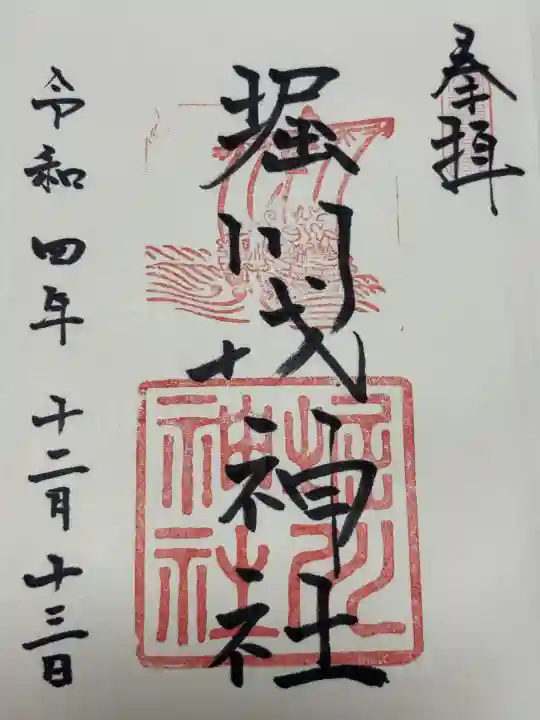 奉拝
堀川戎神社
堀川
神社
令和四年十二月十三日